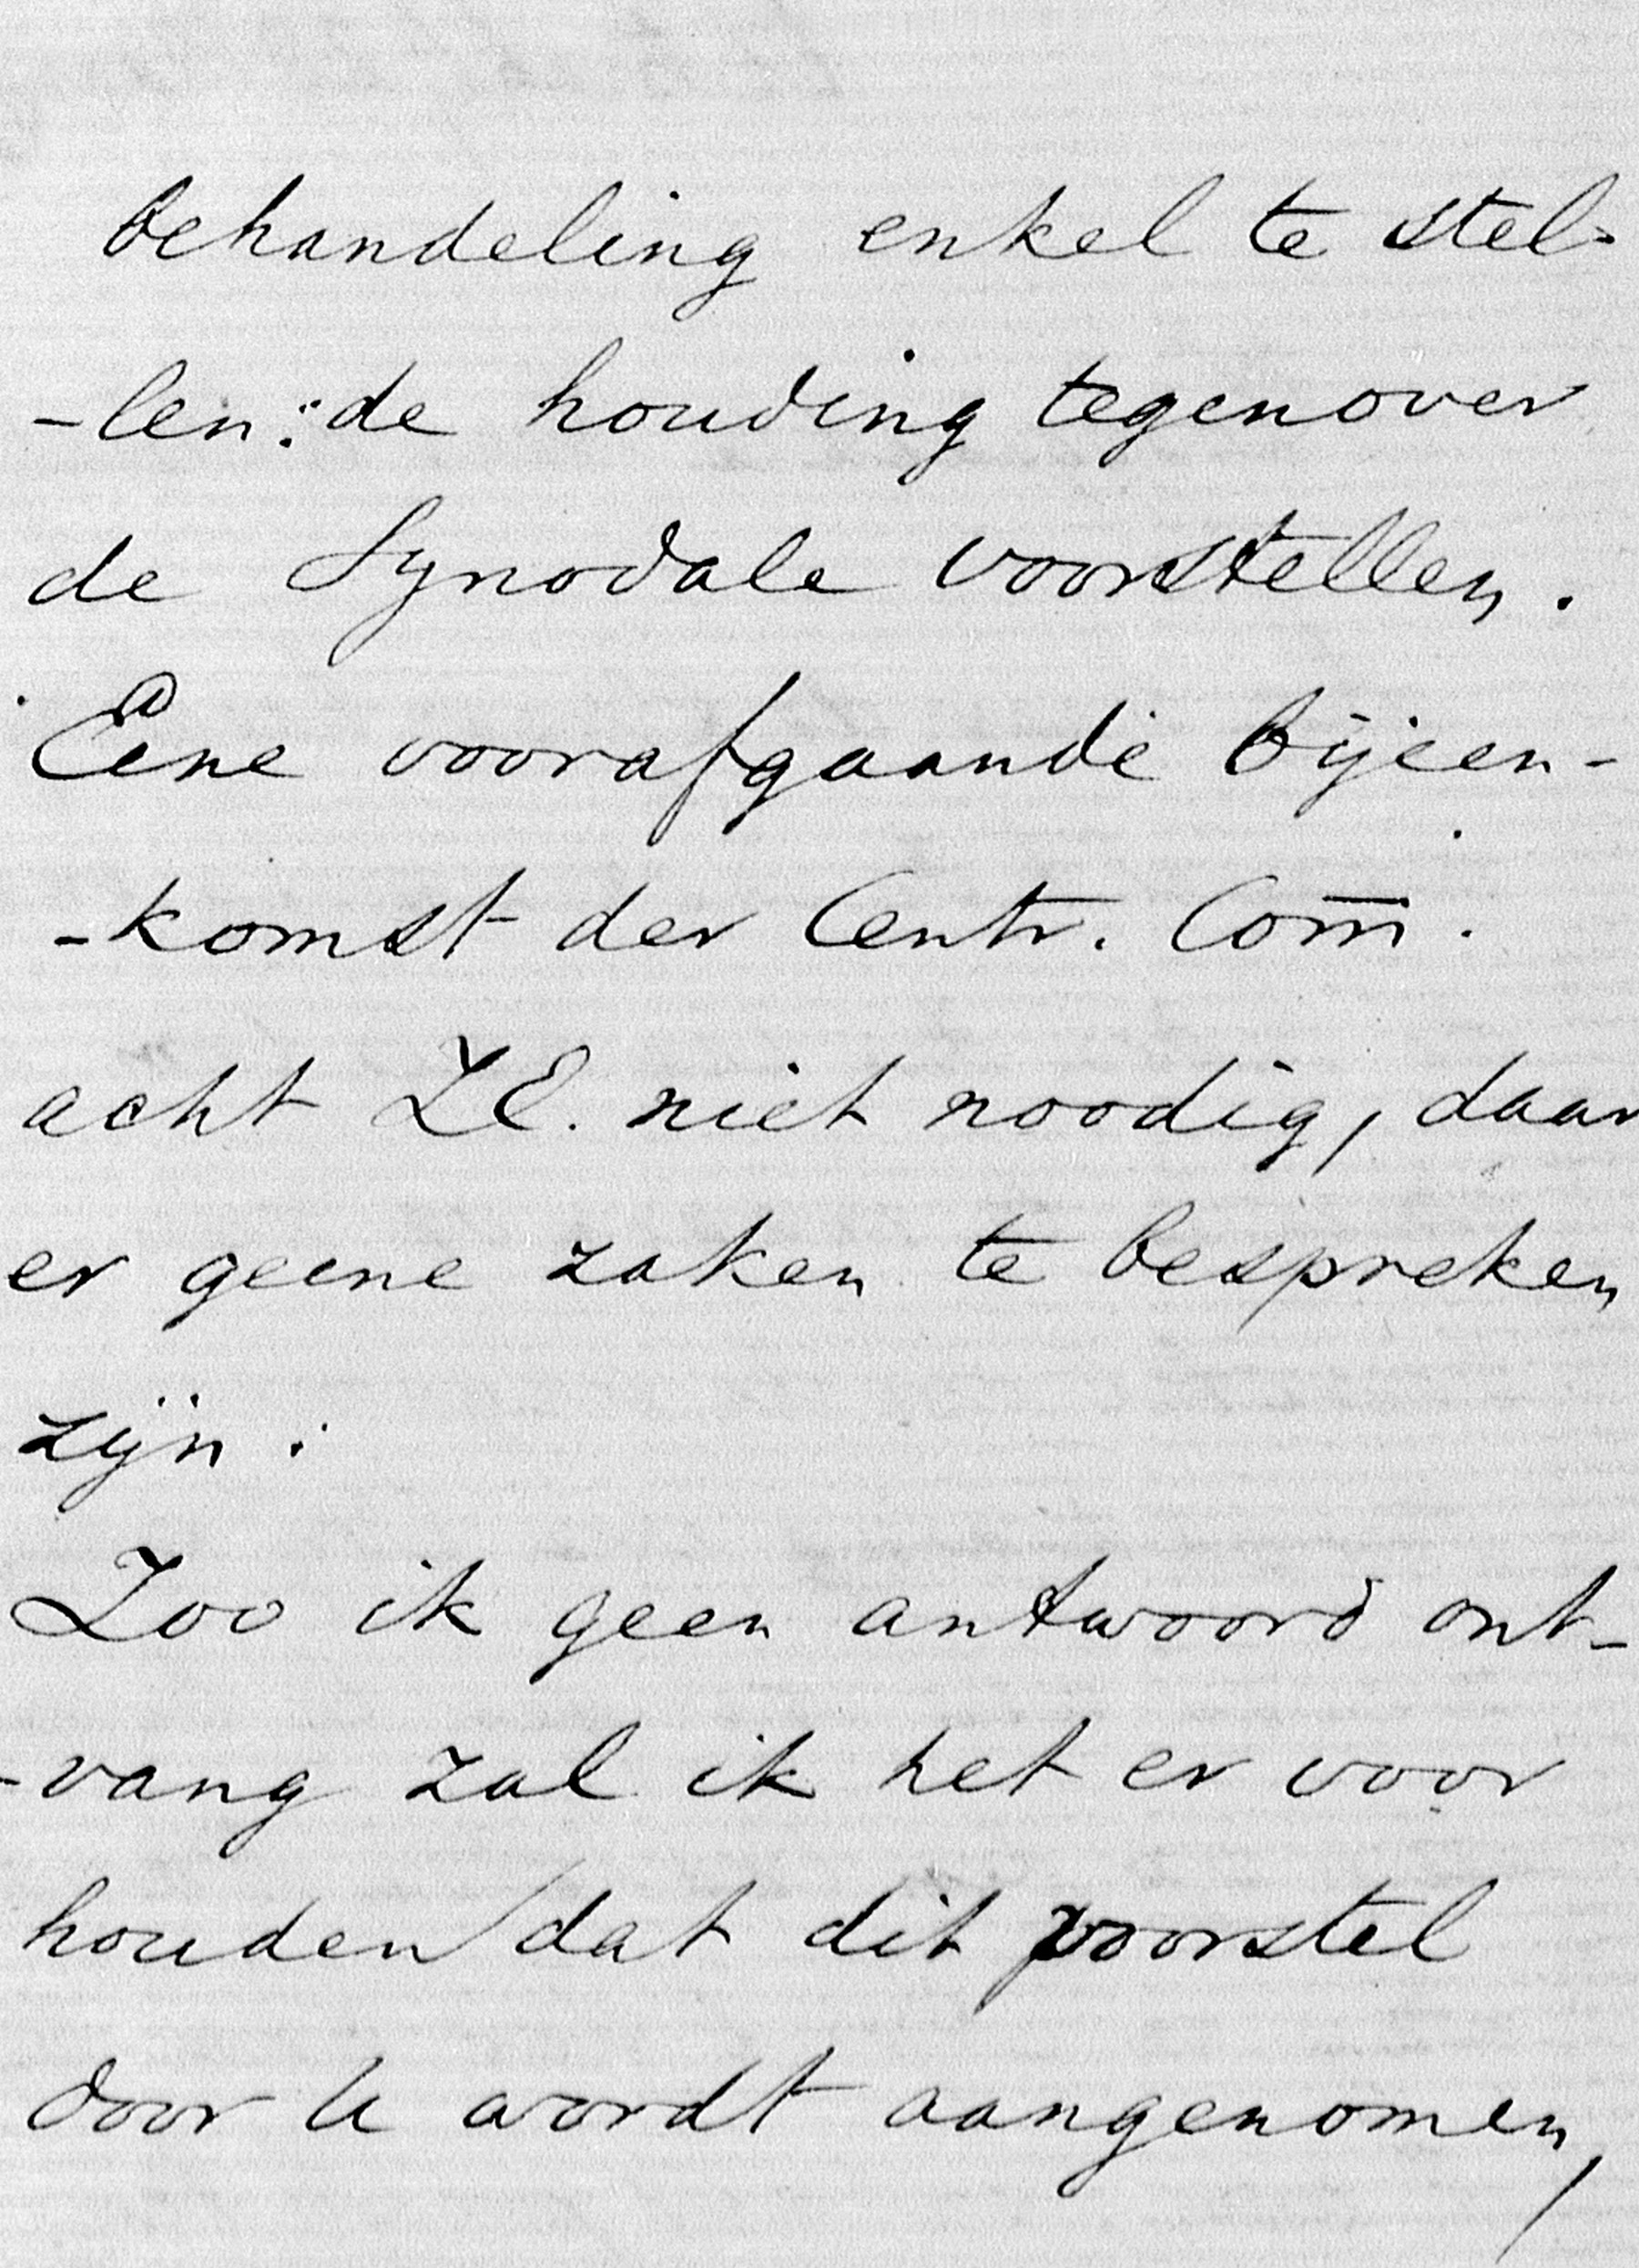 behandeling enkel te stel-
-len: de houding tegenover
de Synodale voorstellen.
Eene voorafgaande bijeen-
-komst der Centr. Com̅.
acht ZE. niet noodig, daar
er geene zaken te bespreken
zijn.
Zoo ik geen antwoord ont-
-vang zal ik het er voor
houden dat dit voorstel
door U wordt aangenomen,